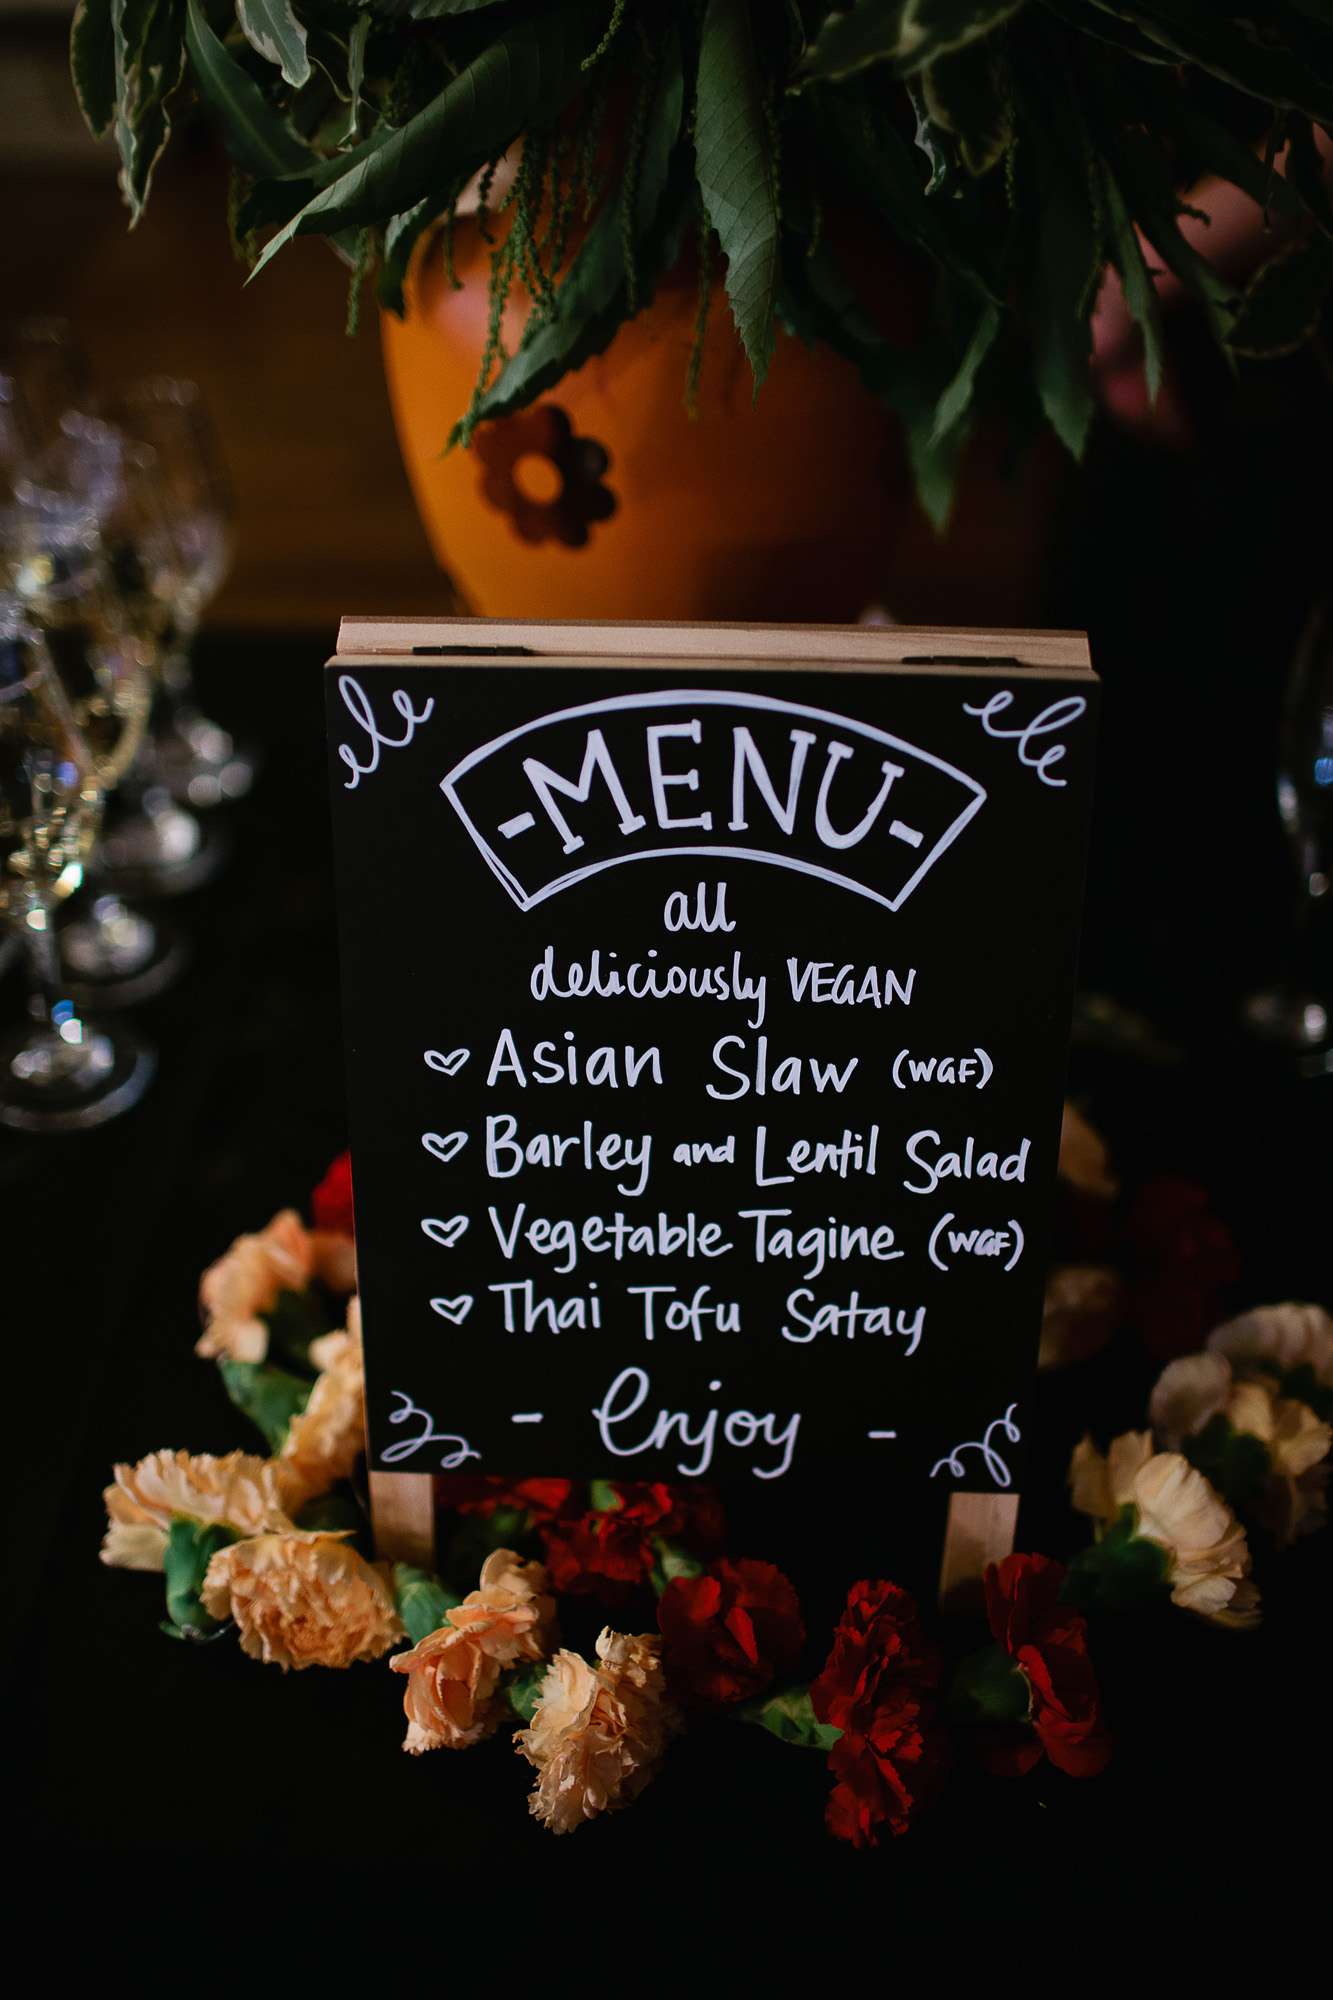 -MENU-
all
deliciously VEGAN
♡ Asian Slaw (WGF)
♡ Barley and Lentil Salad
♡ Vegetable Tagine (WGF)
♡ Thai Tofu Satay
- Enjoy -